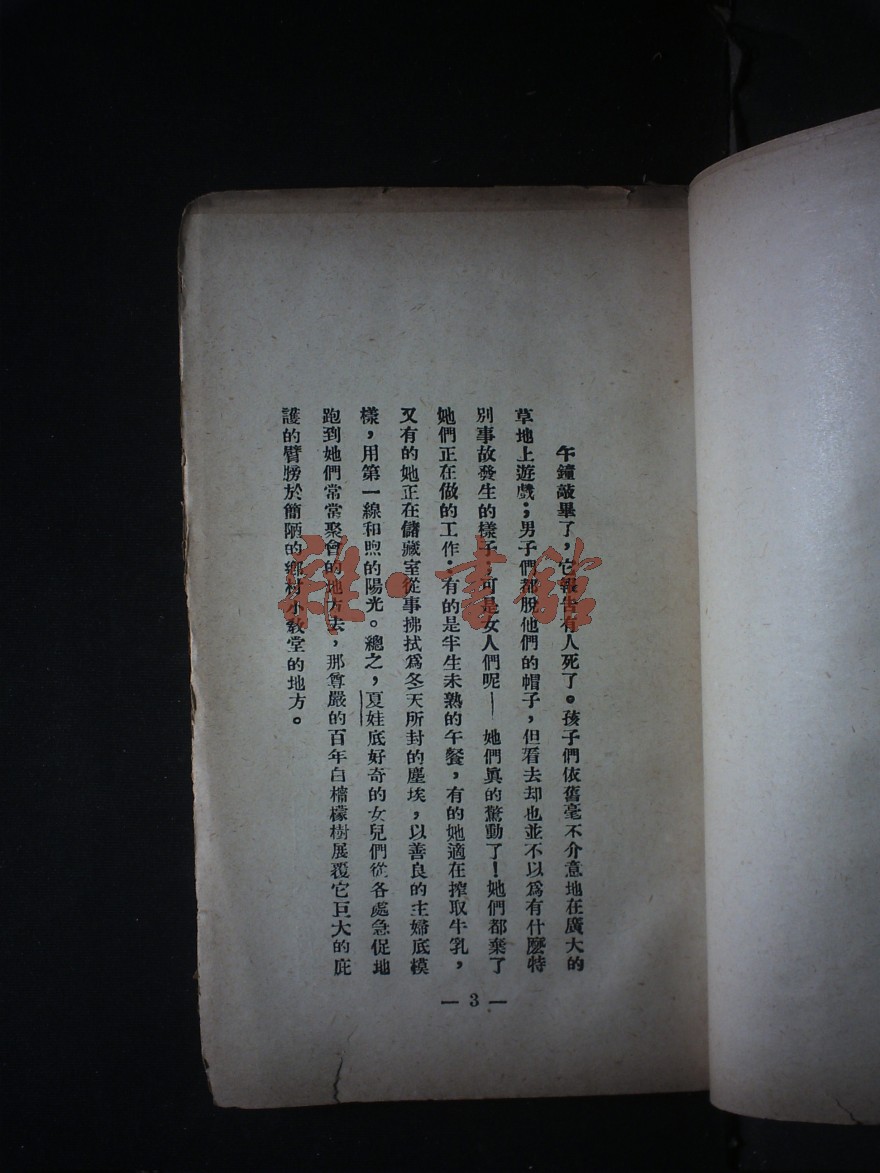 午鐘敲畢了，它報告有人死了。孩子們依舊毫不介意地在廣大的
草地上遊戲；男子們都脫他們的帽子，但看去却也並不以爲有什麽特
別事故發生的樣子；可是女人們呢——她們眞的驚動了！她們都棄了
她們正在做的工作；有的是半生未熟的午餐，有的她適在搾取牛乳，
又有的她正在儲藏室從事拂拭爲冬天所封的塵埃，以善良的主婦底模
樣，用第一線和煦的陽光。總之，夏娃底好奇的女兒們從各處急促地
跑到她們常常聚會的地方去，那尊嚴的百年白檸檬樹展覆它巨大的庇
護的臂膀於簡陋的鄉村小教堂的地方。
— 3 —
雜·書館